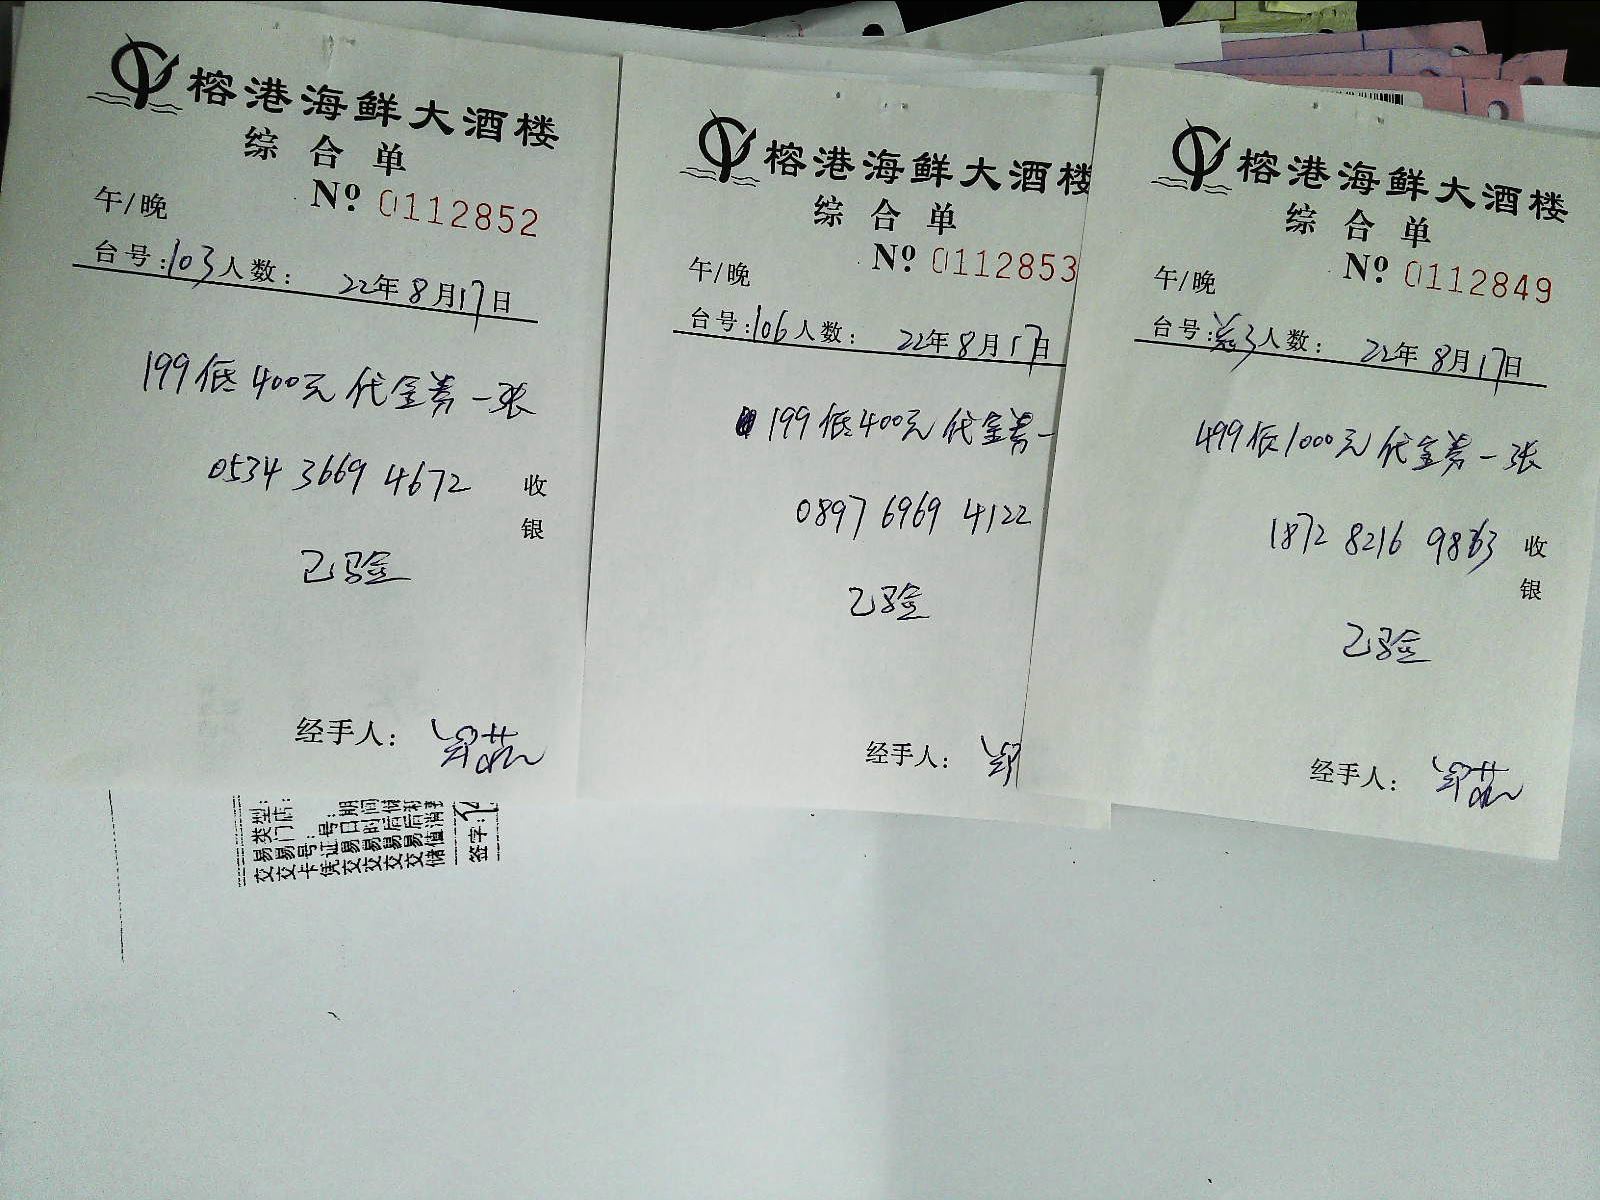 榕港海鲜大酒楼
综合单
№ 0112852
午/晚
台号:103人数: 22年8月17日
199低400元代金券一张
0534 3669 4672
收银
已验
经手人:
榕港海鲜大酒楼
综合单
№ 0112853
午/晚
台号:106人数: 22年8月17日
199低400元代金券一
0897 6969 4122
已验
经手人:
榕港海鲜大酒楼
综合单
№ 0112849
午/晚
3人数: 22年8月17日
499低1000元代金券一张
1872 8216
收银
已验
经手人:
交易类型:
交易门店:
卡号:
凭证号:
交易日期
交易时间
交易后储
交易后积
储值消费
签字: